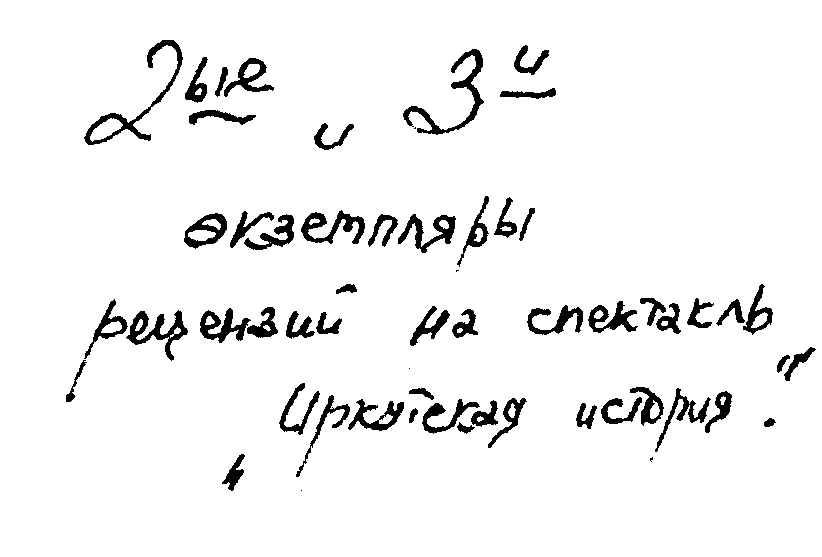 2ые и 3и
экземпляры
рецензий на спектакль
„Иркутская история."